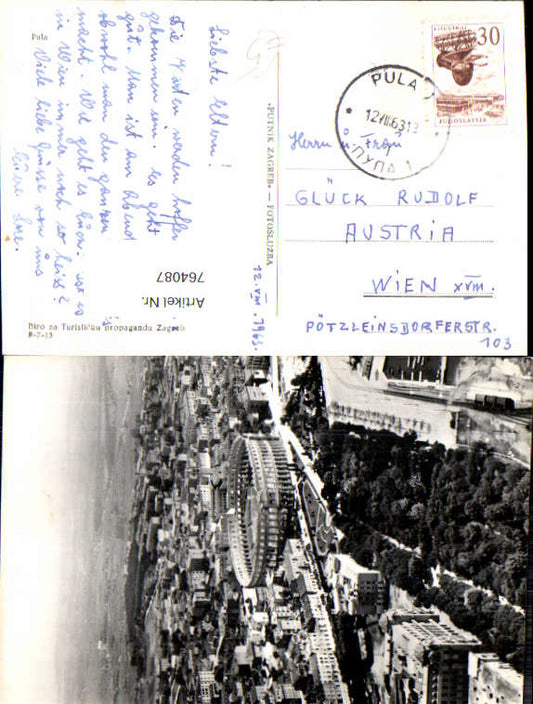 Pula
Liebste Eltern!
Die Karten werden hoffen
gekommen sein. es geht
gut. Man ist am Abend
obwohl man den ganzen
macht. Wie geht es euch. ist es
in Wien immer noch so heiss?
Viele liebe Grüsse von uns
Eure
12.VIII.1963.
Artikel Nr.
764087
Biro za Turističku propagandu Zagreb
P-7-13
»PUTNIK ZAGREB« — FOTOSLUŽBA
30
JUGOSLAVIJA
PULA 1
12 VIII 63 19
ПУЛА 1
Herrn u. Frau
GLÜCK RUDOLF
AUSTRIA
WIEN XVIII.
PÖTZLEINSDORFERSTR.
103